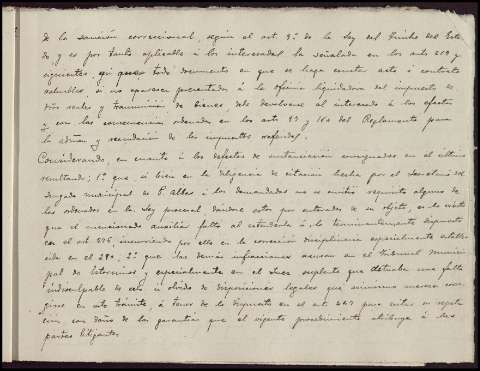 de la sanción correccional, según el art. 9º de la Ley del Timbre del Esta-
do, y es por tanto aplicable á los interesados la señalada en los arts 219 y
siguientes, todo documento en que se haga constar acto ó contrato
si no aparece presentado á la oficina liquidadora del impuesto de
reales y transmisión de bienes, debe devolverse al interesado á los efectos
y con las consecuencias ordenadas en los arts. y del Reglamento para
la y recaudación de los impuestos
Considerando, en cuanto á los defectos de sustanciación consignados en el último
resultando; 1º que, si bien en la diligencia de citación hecha por el Secretario del
Juzgado municipal de á los demandados no se omitió requisito alguno de
los ordenados en la Ley procesal dándose estos por enterados de su objeto, es lo cierto
que el mencionado auxiliar faltó al extenderla á lo terminantemente dispuesto
en el art. incurriendo por ello en la corrección disciplinaria especialmente estable-
cida en el 2º que las demás infracciones acusan en el Tribunal munici-
pal de y especialmente en el Juez suplente que actuaba una falta
indisculpable de celo u olvido de disposiciones legales que asimismo merece corre-
girse en este trámite á tenor de lo dispuesto en el art. por evitar su repeti-
ción con daño de las garantías que el vigente procedimiento otorga á las
partes litigantes.